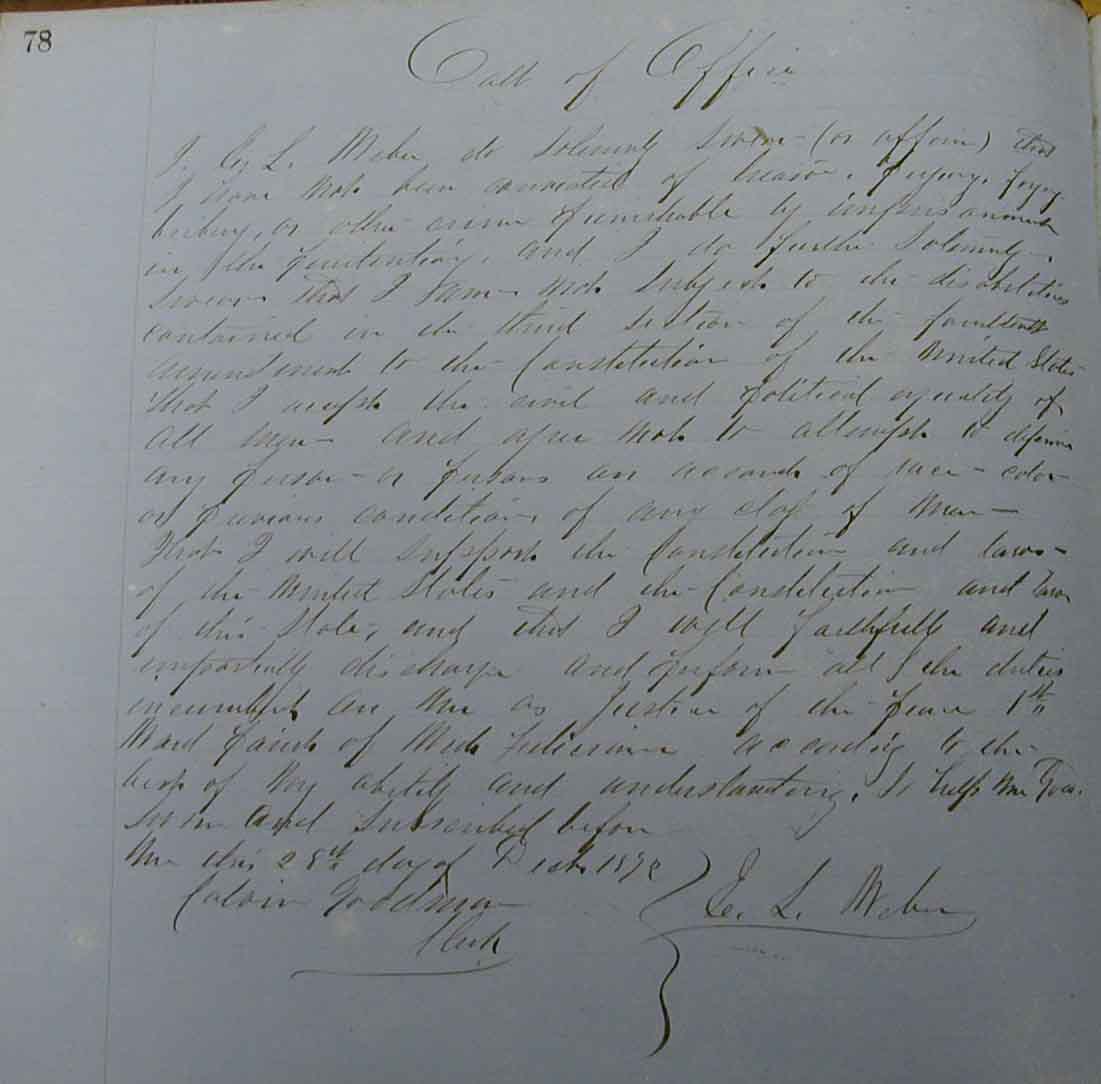 78
Oath of Office
I, E. L. Weber do Solemnly Swear (or affirm) that
I have not been convicted of treason, perjury, forgery
bribery, or other crime punishable by imprisonment
in the penitentiary, and I do further Solemnly
Swear that I am not Subject to the disabilities
contained in the third section of the fourteenth
amendment to the Constitution of the United States
that I accept the civil and political equality of
all men and agree not to attempt to deprive
any person or persons on account of race color
or previous condition, of any class of men
That I will Support the Constitution and laws
of the United States and the Constitution and laws
of this State, and that I will faithfully and
impartially discharge and perform all the duties
incumbent on me as Justice of the Peace 1st
Ward Parish of West Feliciana according to the
best of my ability and understanding. So help me God.
Sworn and Subscribed before
me this 28th day of Dect 1872
Calvin Goodman
Clerk
E. L. Weber